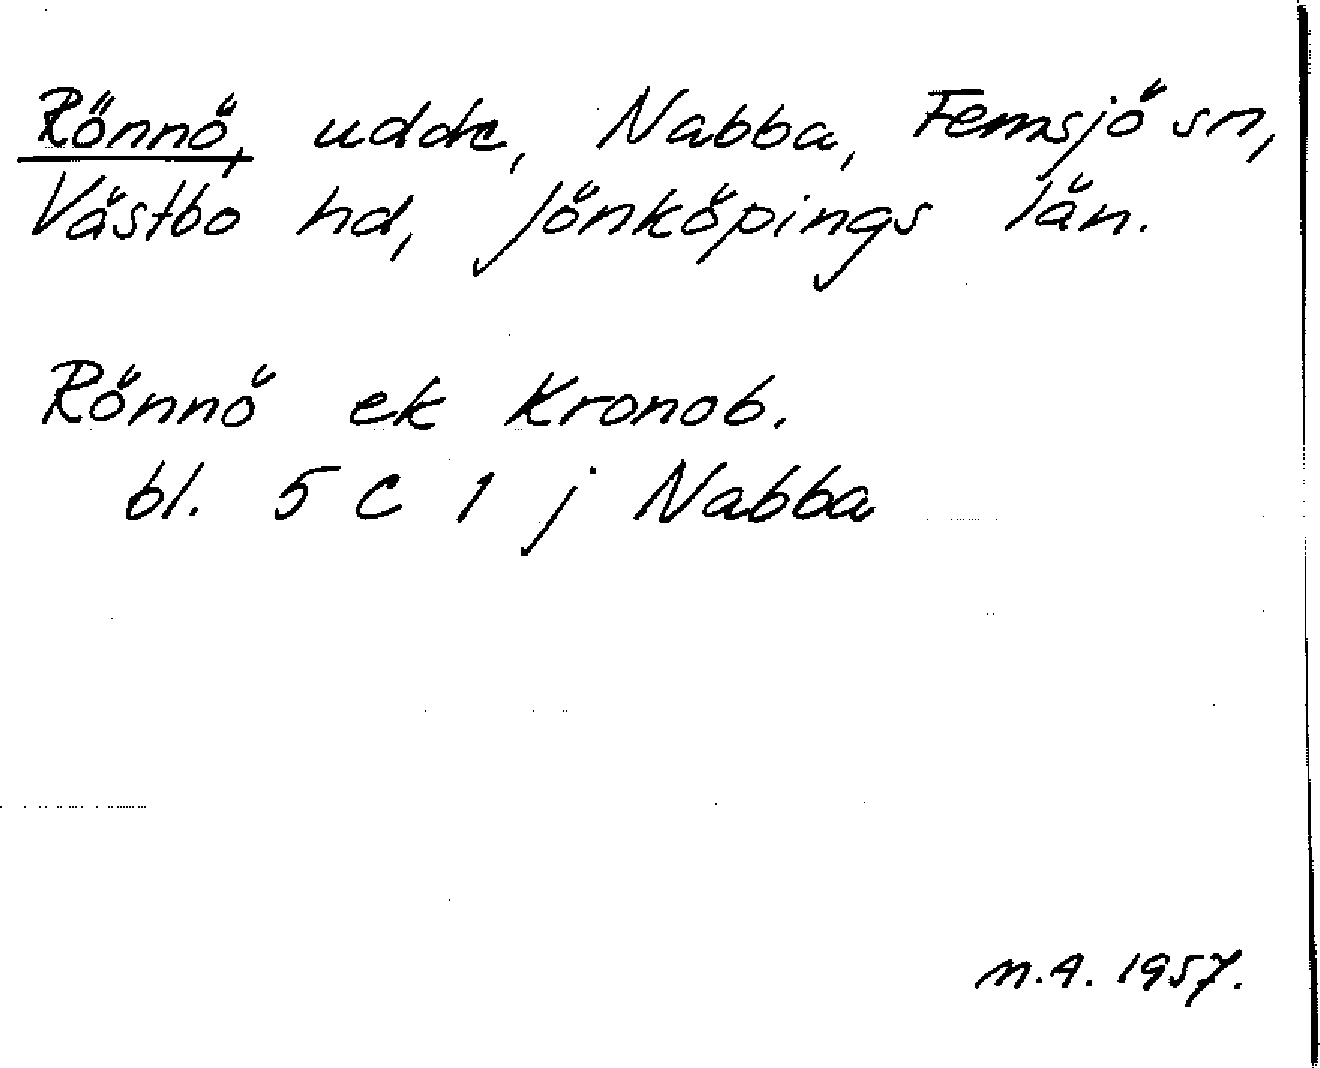 Rönnö, udde, Nabba, Femsjö sn,
Västbo hd, Jönköpings län.
Rönnö ek Kronob.
bl. 5 C 1 j Nabba
n.A. 1957.